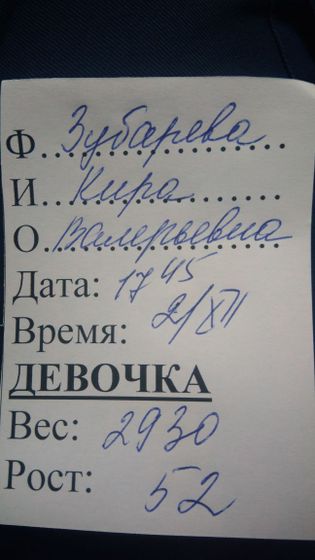 Ф. Зубарева
И. Кира
О. Валерьевна
Дата: 17 45
Время: 2/XII
ДЕВОЧКА
Вес: 2930
Рост: 52